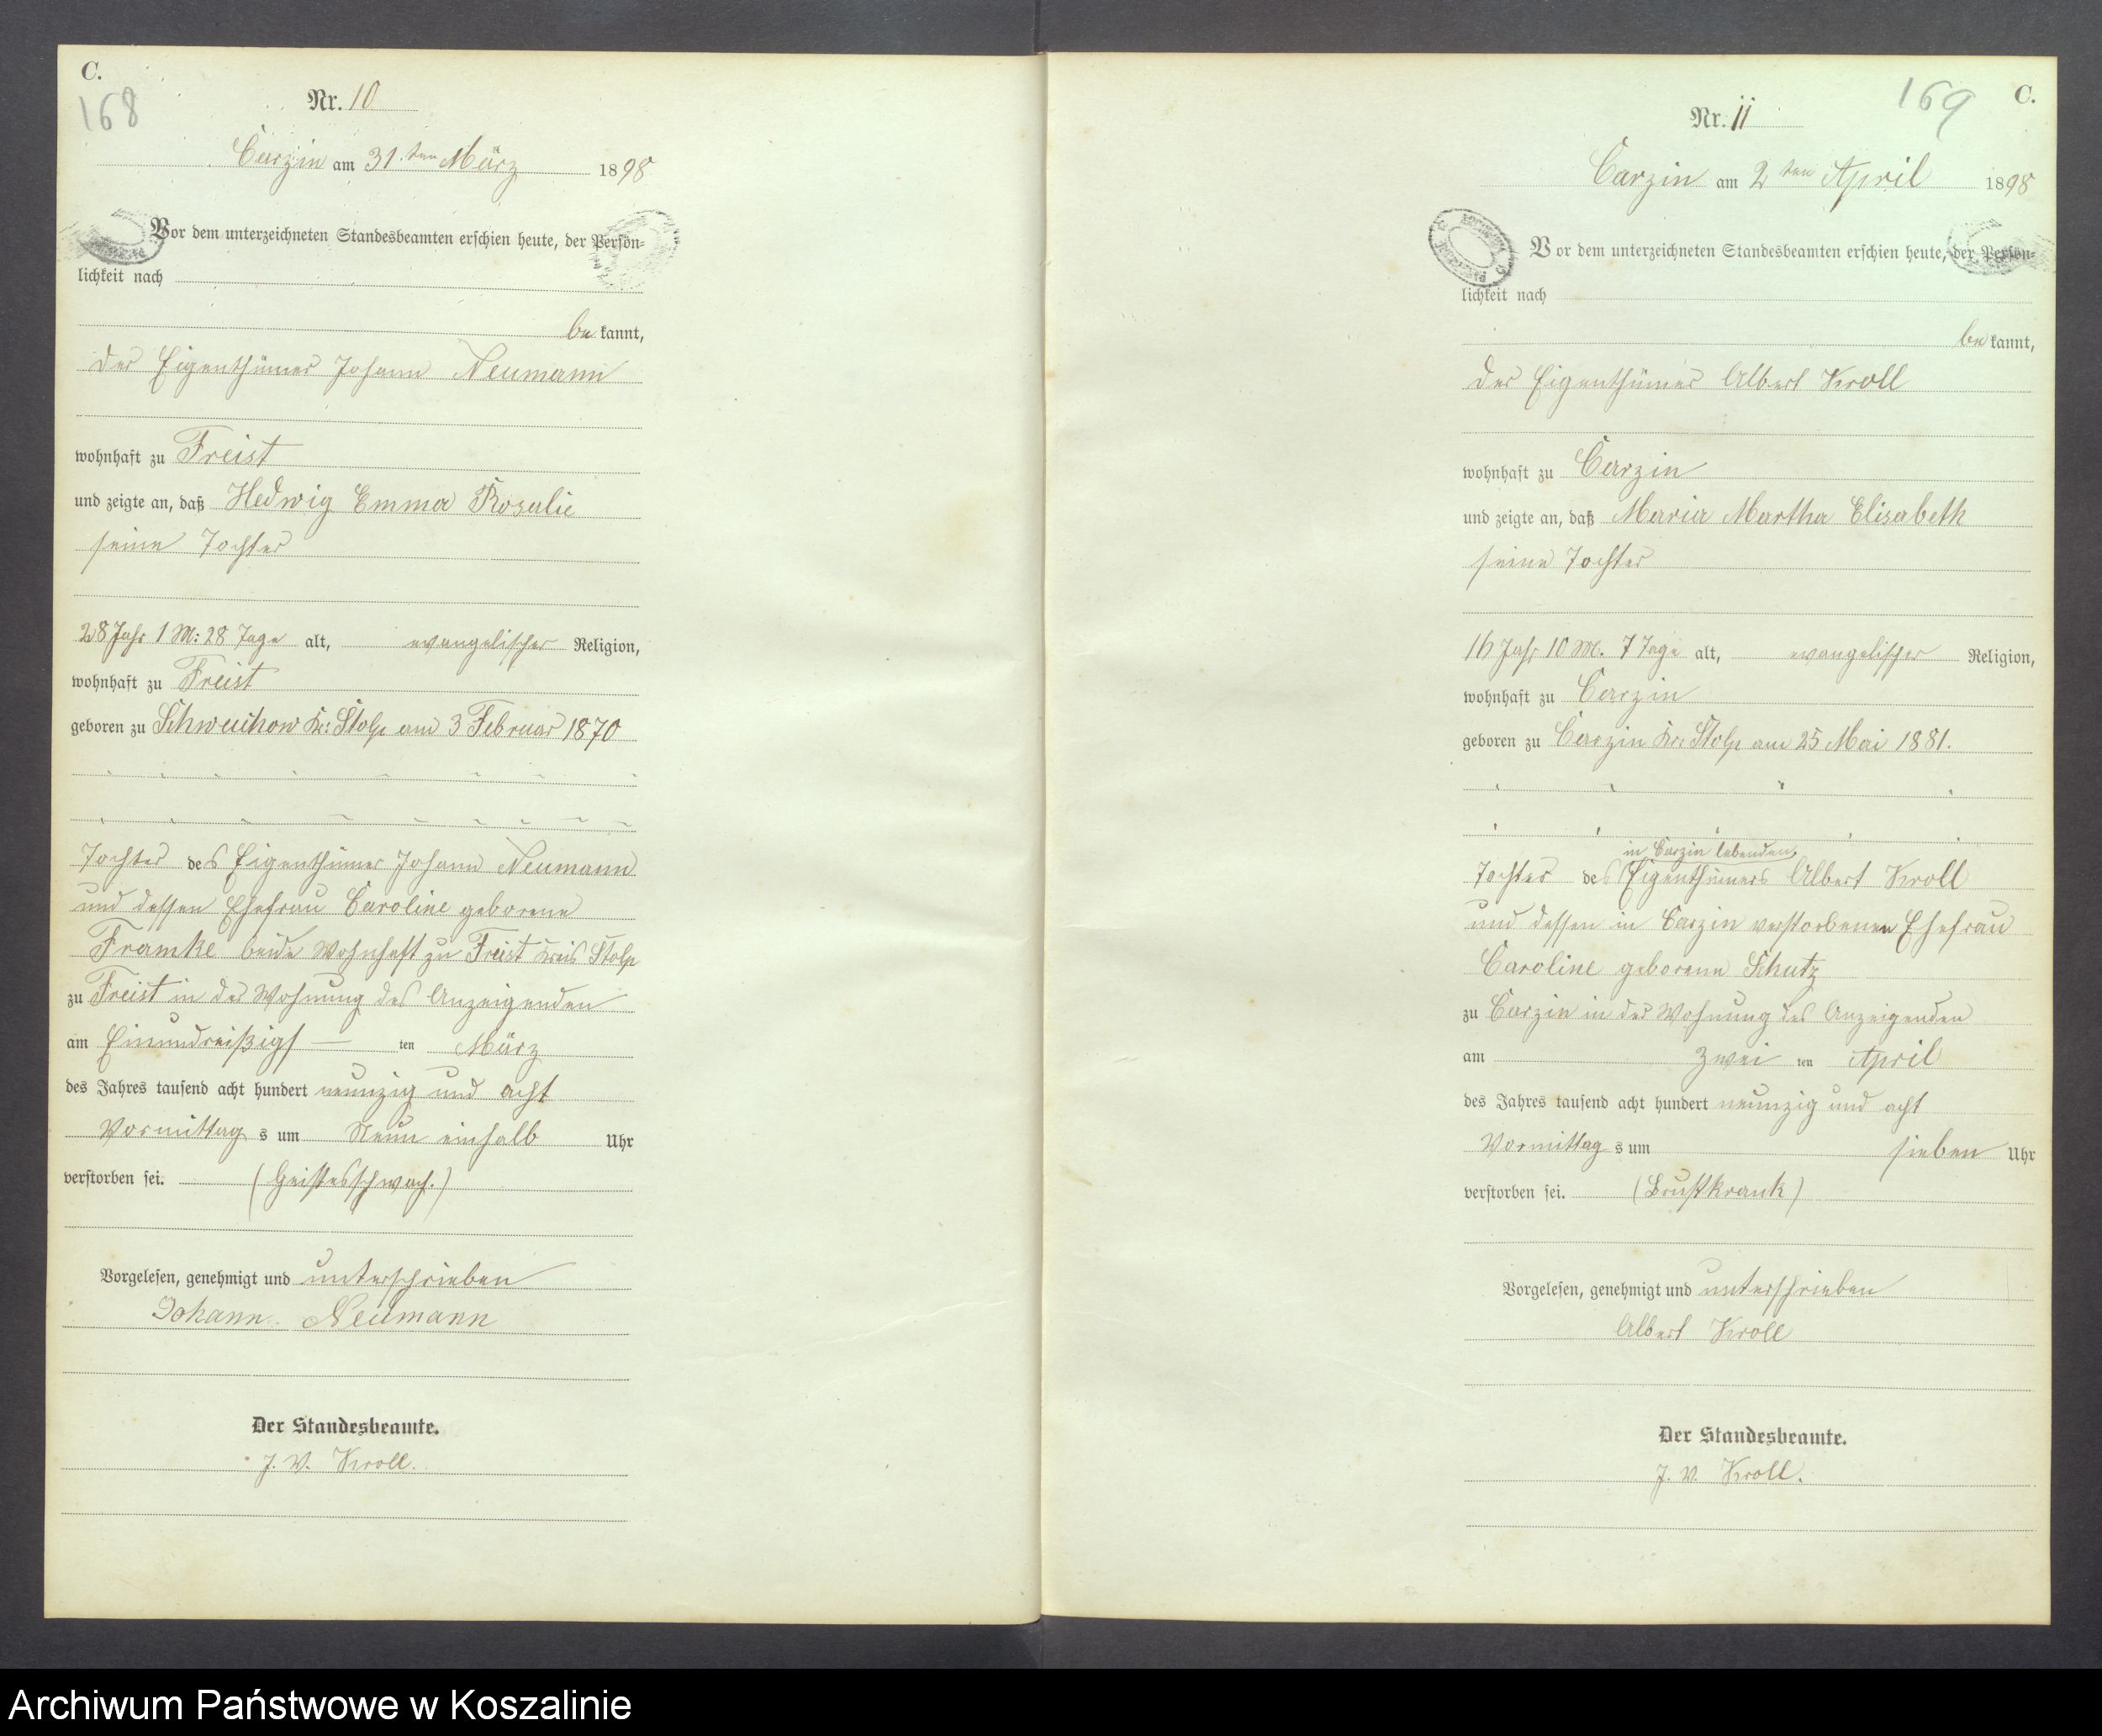 C.
168
Nr. 10
Carzin am 31.ten März 1898
Vor dem unterzeichneten Standesbeamten erschien heute, der Persön-
lichkeit nach
be kannt,
der Eigenthümer Johann Neumann
wohnhaft zu Freist
und zeigte an, daß Hedwig Emma Rosalie
seine Tochter
28 Jahr 1 M: 28 Tage alt, evangelischer Religion,
wohnhaft zu Freist
geboren zu Schwuchow Kr: Stolp am 3 Februar 1870
Tochter des Eigenthümer Johann Neumann
und dessen Ehefrau Caroline geborene
Framke beide wohnhaft zu Freist Kreis Stolp
zu Freist in der Wohnung des Anzeigenden
am Einundreißigs — ten März
des Jahres tausend acht hundert neunzig und acht
Vormittag s um Neun einhalb Uhr
verstorben sei. (Geistesschwach.)
Vorgelesen, genehmigt und unterschrieben
Johann Neumann
Der Standesbeamte.
J. V. Kroll.
169
C.
Nr. 11
Carzin am 2ten April 1898
Vor dem unterzeichneten Standesbeamten erschien heute, der Persön-
lichkeit nach
be kannt,
der Eigenthümer Albert Kroll
wohnhaft zu Carzin
und zeigte an, daß Maria Martha Elisabeth
seine Tochter
16 Jahr 10 M. 7 Tage alt, evangelischer Religion,
wohnhaft zu Carzin
geboren zu Carzin Kr: Stolp am 25 Mai 1881.
in Carzin lebenden
Tochter des Eigenthümers Albert Kroll
und dessen in Carzin verstorbenen Ehefrau
Caroline geborene Schutz
zu Carzin in der Wohnung des Anzeigenden
am Zwei ten April
des Jahres tausend acht hundert neunzig und acht
Vormittag s um sieben Uhr
verstorben sei. (Brustkrank)
Vorgelesen, genehmigt und unterschrieben
Albert Kroll
Der Standesbeamte.
J. V. Kroll.
Archiwum Państwowe w Koszalinie